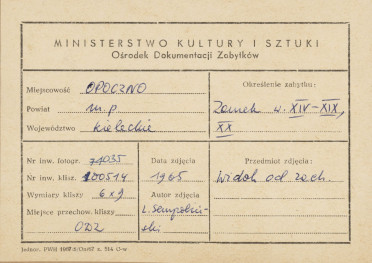 MINISTERSTWO KULTURY I SZTUKI
Ośrodek Dokumentacji Zabytków
Miejscowość OPOCZNO
Powiat m.p.
Województwo kieleckie
Określenie zabytku:
Zamek w. XIV-XIX,
XX
Nr inw. fotogr. 71035
Nr inw. klisz. 100514
Wymiary kliszy 6x9
Miejsce przechow. kliszy
ODZ
Data zdjęcia
1965
Autor zdjęcia
L. Sempoliń-
ski
Przedmiot zdjęcia:
Widok od zach.